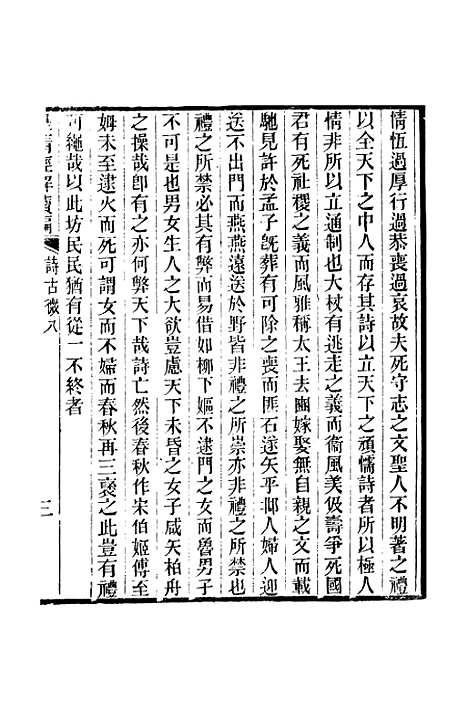 情恆過厚行過恭喪過哀故夫死守志之文聖人不明著之禮
以全天下之中人而存其詩以立天下之頑懦詩者所以極人
情非所以立通制也大杖有逃走之義而衞風美伋壽爭死國
君有死社稷之義而風雅稱太王去豳嫁娶無自親之文而載
馳見許於孟子旣葬有可除之喪而匪石遂矢乎鄘人婦人迎
送不出門而燕燕遠送於野皆非禮之所崇亦非禮之所禁也
禮之所禁必其有弊而易借如柳下嫗不逮門之女而魯男子
不可是也男女生人之大欲豈慮天下未昏之女子咸矢柏舟
之操哉卽有之亦何弊天下哉詩亡然後春秋作宋伯姬傅至
姆未至逮火而死可謂女而不婦而春秋再三襃之此豈有禮
可繩哉以此坊民民猶有從一不終者
皇淸經解續編 詩古微八 三